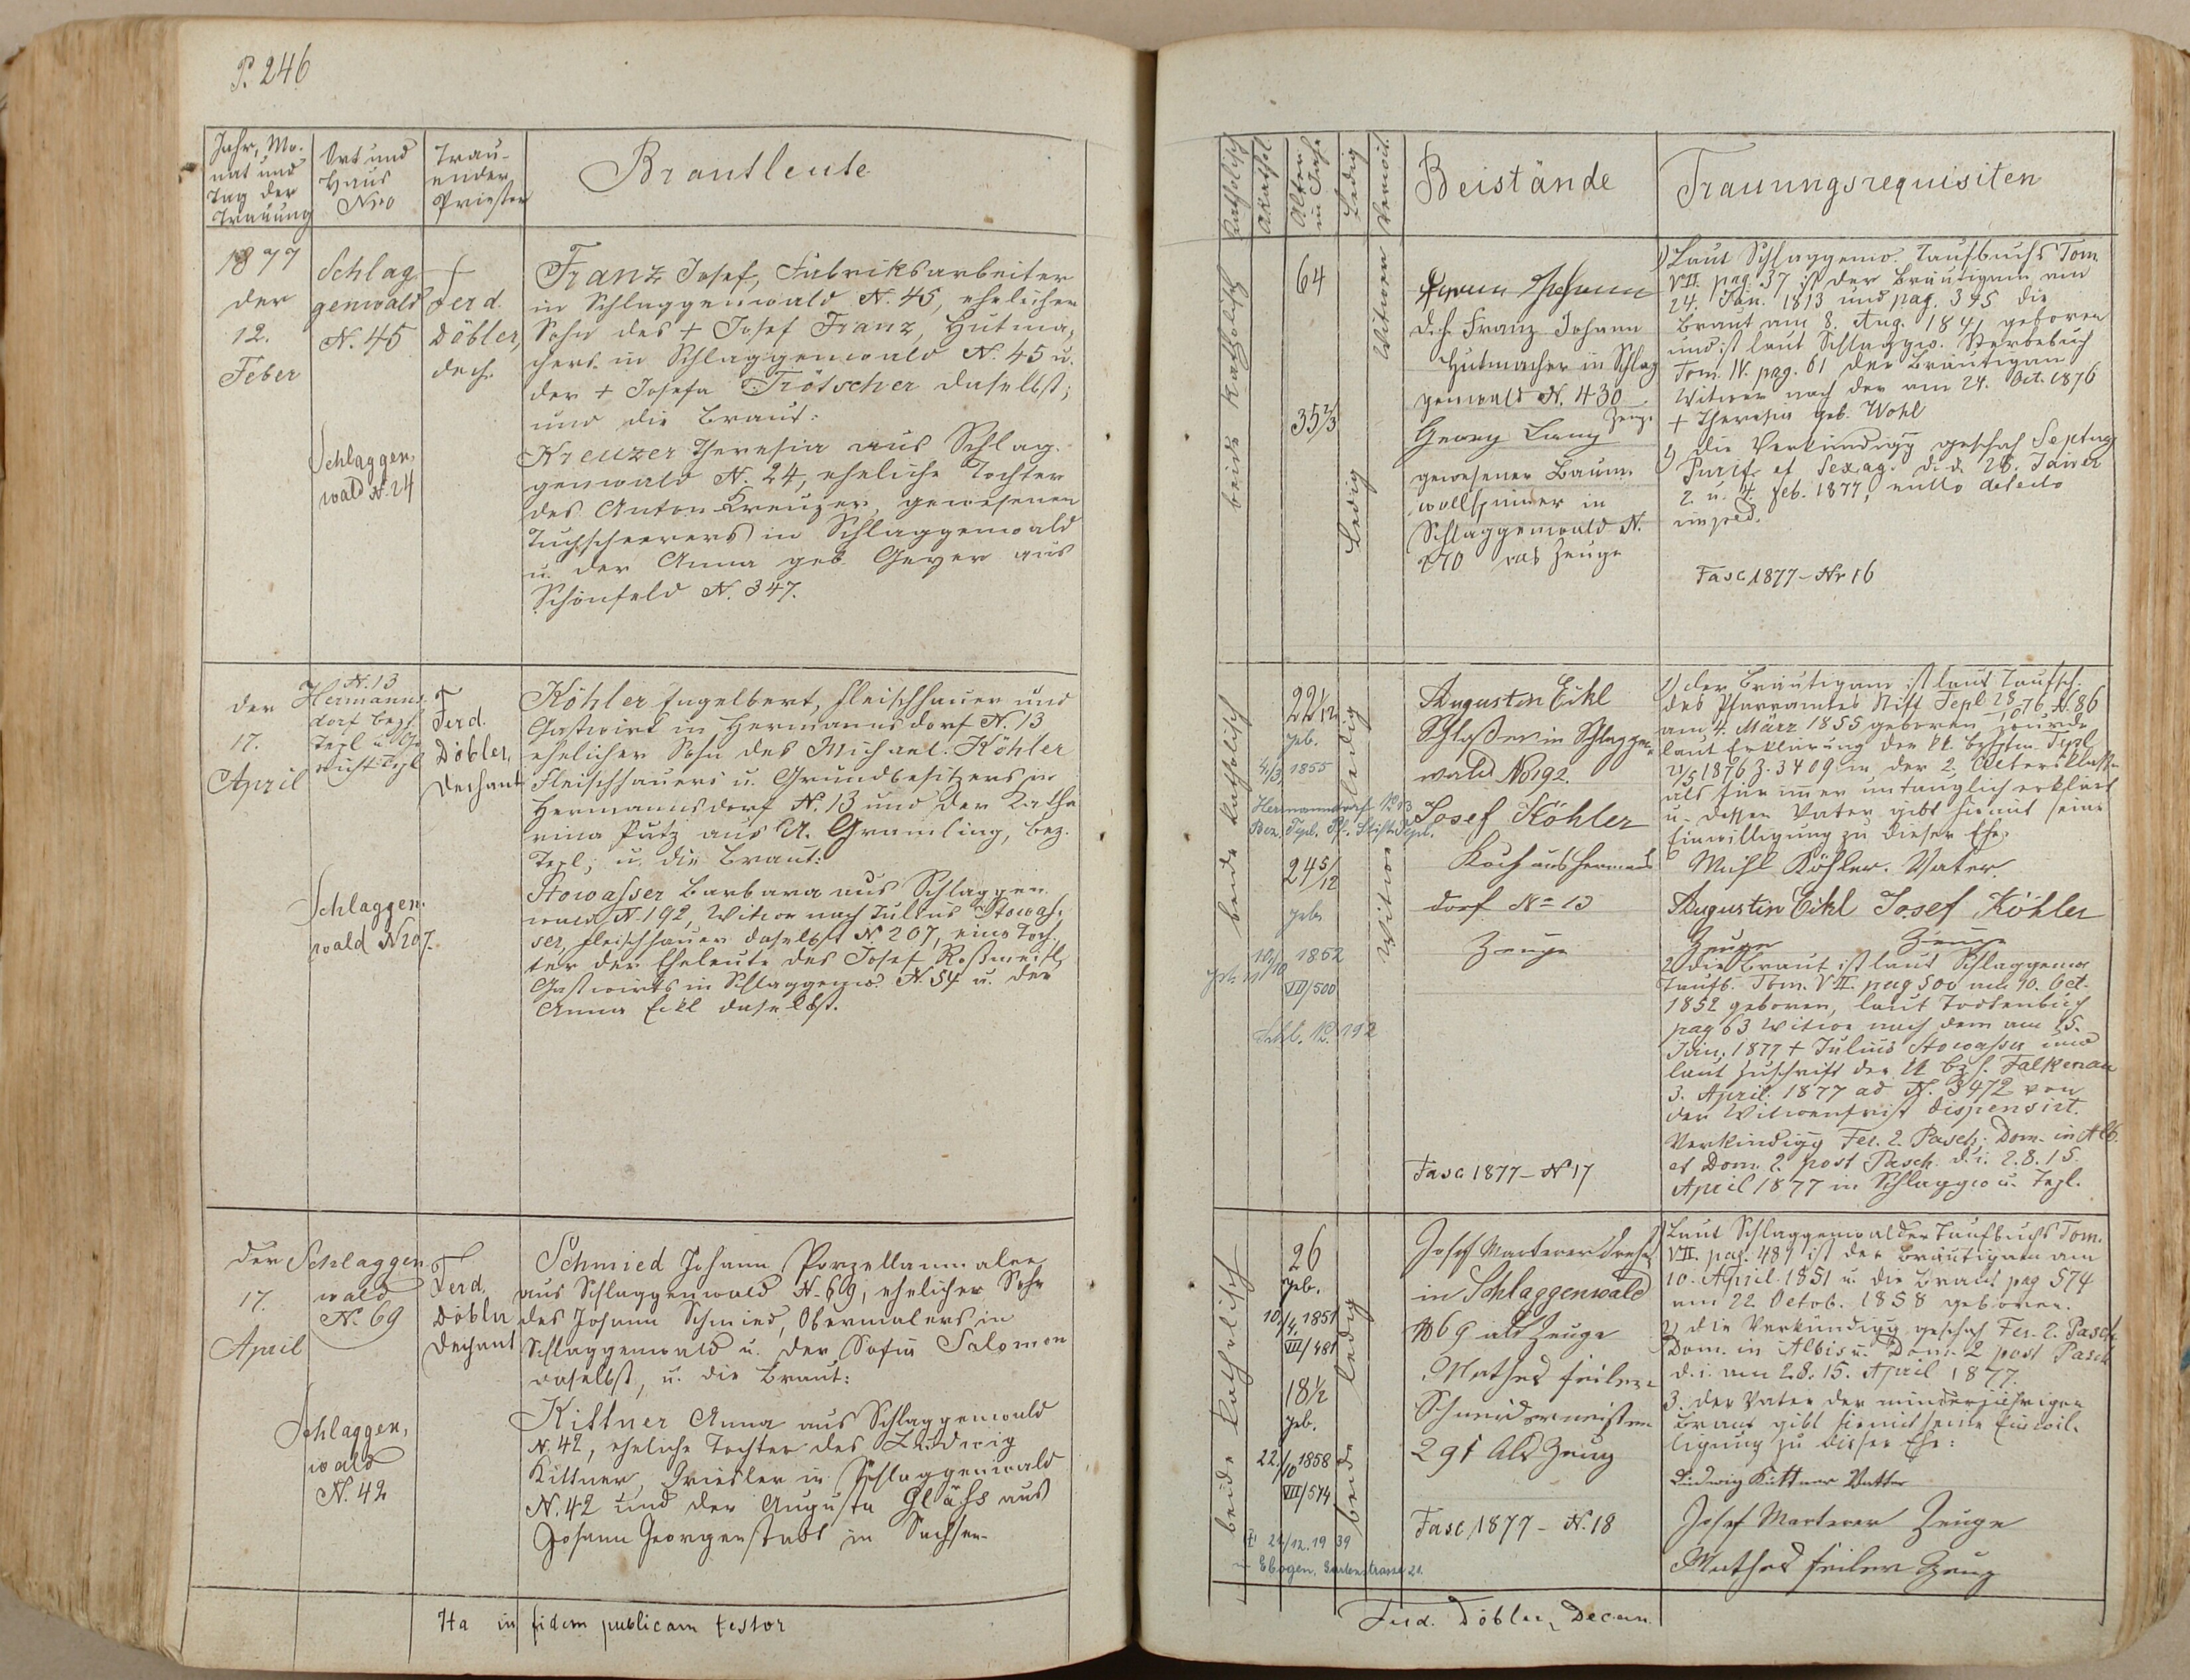 P. 246
Jahr, Mo-
nat und
Tag der
Trauung
Ort und
Haus
Nro
Trau-
ender
Priester
Brautleute
1877
der
12.
Feber
Schlag
genwald
N. 45
Schlaggen-
wald N. 24
Ferd.
Döbler,
dech.
Franz Josef, Fabriksarbeiter
in Schlaggenwald N. 45, ehelicher
Sohn des + Josef Franz, Hutma-
chers in Schlaggenwald N. 45 u.
der + Josefa Trötscher daselbst;
und die Braut:
Kreuzer Theresia aus Schlag-
genwald N. 24, eheliche Tochter
des Anton Kreuzer, gewesenen
Tuchscherers in Schlaggenwald
u. der Anna geb. Geyer aus
Schönfeld N. 347.
der
17.
April
N. 13
Hermanns-
dorf Bez.
Tepl
Schlaggen-
wald N 207.
Ferd.
Döbler,
Dechant
Köhler Engelbert, Fleischhauer und
Gastwirt in Hermannsdorf N. 13
ehelicher Sohn des Michael Köhler
Fleischhauers u. Grundbesitzers in
Hermannsdorf N. 13 und der Katha
rina Putz aus A. Gramling, bez.
Tepl; u. die Braut:
Stowasser Barbara aus Schlaggen
wald N. 192, Witwe nach Julius Stowas-
ser, Fleischhauer daselbst N. 207, eine Toch
ter der Eheleute des Josef Roßmeisl
Gastwirts in Schlaggenw. N. 54 u. der
Anna Eckl daselbst.
der
17.
April
Schlaggen
wald
N. 69
Schlaggen-
wald
N. 42
Ferd.
Döbler
Dechant
Schmied Johann Porzellanmaler
aus Schlaggenwald N. 69, ehelicher Sohn
des Johann Schmied, Obermalers in
Schlaggenwald u. der Sofia Salomon
daselbst, u. die Braut:
Kittner Anna aus Schlaggenwald
N. 42, eheliche Tochter des Ludwig
Kittner, Griesler in Schlaggenwald
N. 42 und der Augusta Gläß aus
Johann Georgenstadt in Sachsen
Ita in fidem publicam testor
Katholisch
Akathol
Alter
in Jahr
Ledig
Verwit.
Beistände
Trauungsrequisiten
beide katholisch
64
35 2/3
Witwer
Ledig
Franz Johann
d. h. Franz Johann
Hutmacher in Schlag
genwald N. 430
Zeuge
Georg Lang
gewesener Baum-
wollspinner in
Schlaggenwald N.
270 als Zeuge
1) Laut Schlaggenw. Taufbuchs Tom
VII. pag. 37 ist der Bräutigam am
24. Jän. 1813 und pag. 345 die
Braut am 8. Aug. 1841 geboren
und ist laut Schlaggw. Sterbebuch
Tom. IV. pag. 61 der Bräutigam
Witwer nach der am 24. Oct. 1876
+ Theresia geb. Wohl
2) die Verkündigg geschah Septuag
Purif. et Sexag. d. i. 28. Jäner
2. u. 4. Feb. 1877, nullo detecto
imped.
Fasc 1877 - Nr 16
beide katholisch
22 1/12
geb.
4/3 1855
Hermannsdorf No 13
Bez. Tepl. Pf. Stift Tepl.
24 5/12
geb.
10/10 1852
VII/500
Schl. No 192
ledig
Witwe
Augustin Eckl
Schloßer in Schlaggen
wald No 192.
Josef Köhler
Koch aus Hermans
dorf No 13
Zeuge
Fasc 1877 - N 17
1) der Bräutigam ist laut Taufsch.
des Pfarramtes Stift Tepl 28/10 76 N. 86
am 4. März 1855 geboren wurde
laut Erklärung der kk. Bezhptm. Tepl
1876 Z. 3409 in der 2. Altersklasse
als für immer untauglich erklärt
u. dessen Vater gibt hiemit seine
Einwilligung zu dieser Ehe.
Michl Köhler. Vater.
Augustin Eckl Josef Köhler
Zeuge Zeuge
2 die Braut ist laut Schlaggenw
Taufb. Tom. VII. pag 500 am 10. Oct.
1852 geboren, laut Todtenbuch
pag 63 Witwe nach dem am 15.
Jän. 1877 + Julius Stowasser und
laut Zuschrift der kk Bzh. Falkenau
3. April 1877 ad N. 3472 von
der Witwenfrist dispensirt.
Verkündigg Fer. 2. Pasch; Dom. in Alb.
et Dom. 2. post Pasch. d. i. 2. 8. 15.
April 1877 in Schlaggw u. Tepl.
beide katholisch
26
geb.
10/4 1851
VII/481
18 1/2
geb.
22/10 1858
VII/574
+ 24/12. 1939
in Elbogen. Gartenstrasse 21.
beide ledig
Josef Marterer Dreher
in Schlaggenwald
No 69 als Zeuge
Mathes Feiler
Schneidermeister
291 Als Zeug
Fasc 1877 - N. 18
1) Laut Schlaggenwalder Taufbuchs Tom.
VII. pag. 481 ist der Bräutigam am
10. April 1851 u. die Braut pag 574
am 22. Octob. 1858 geboren.
2) die Verkündigg geschah Fer. 2. Pasch
Dom. in Albis u. Dom. 2 post Pasch
d. i. am 2. 8. 15. April 1877.
3. der Vater der minderjährigen
Braut gibt hiemit seine Einwil-
ligung zu dieser Ehe:
Ludwig Kittner Vatter
Josef Marterer Zeuge
Mathes Feiler Zeug
Ferd. Döbler, Decan.